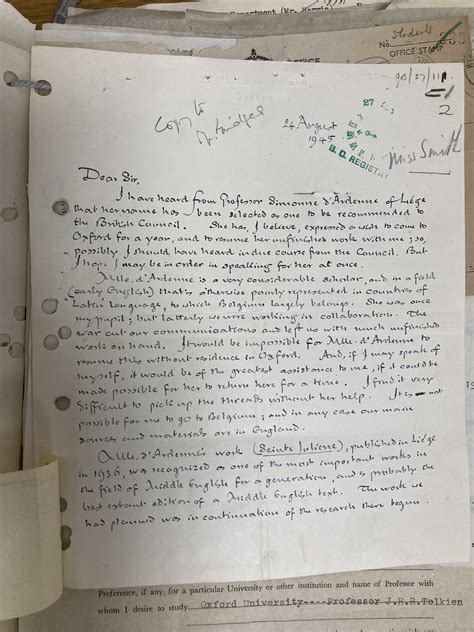 Department (Mr.
No.
Students
OFFICE STAMP
OFFICE
90/27/111
2
27
Copy to
Mr Bridges
24 August
1945
B.C. REGISTRY
Miss Smith
Dear Sir,
I have heard from Professor Simonne d'Ardenne of Liége
that her name has been selected as one to be recommended to
the British Council. She has, I believe, expressed a wish to come to
Oxford for a year, and to resume her unfinished work with me; so,
possibly I should have heard in due course from the Council. But
I hope I may be in order in speaking for her at once.
Mlle. d'Ardenne is a very considerable scholar, and in a field
(early English) that is otherwise poorly represented in countries of
Latin language, to which Belgium largely belongs. She was once
my pupil, but latterly we were working in collaboration. The
war cut our communications and left us with much unfinished
work on hand. It would be impossible for Mlle. d'Ardenne to
resume this without residence in Oxford. And, if I may speak of
myself, it would be of the greatest assistance to me, if it could be
made possible for her to return here for a time. I find it very
difficult to pick up the threads without her help. It is not
possible for me to go to Belgium; and in any case our main
sources and materials are in England.
Mlle. d'Ardenne's work (Seinte Juliene), published in Liége
in 1936, was recognized as one of the most important works in
the field of Middle English for a generation, and is probably the
best extant edition of a Middle English text. The work we
had planned was in continuation of the research there begun.
Preference, if any, for a particular University or other institution and name of Professor with
whom I desire to study Oxford University----Professor J.R.R.Tolkien